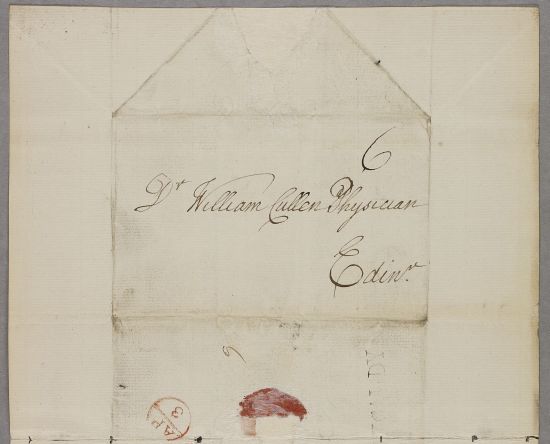 6
Dr William Cullen Physician
Edinr.
AP
3